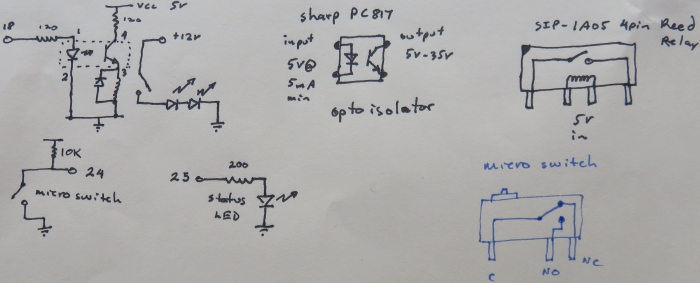 Vcc 5v
120
18
120
1
4
+12v
2
3
sharp PC817
input
output
5v@
5v-35v
5mA
min
opto isolator
SIP-1A05 4pin Reed
Relay
5v
in
10K
24
micro switch
25
200
status
LED
micro switch
C
NO
NC